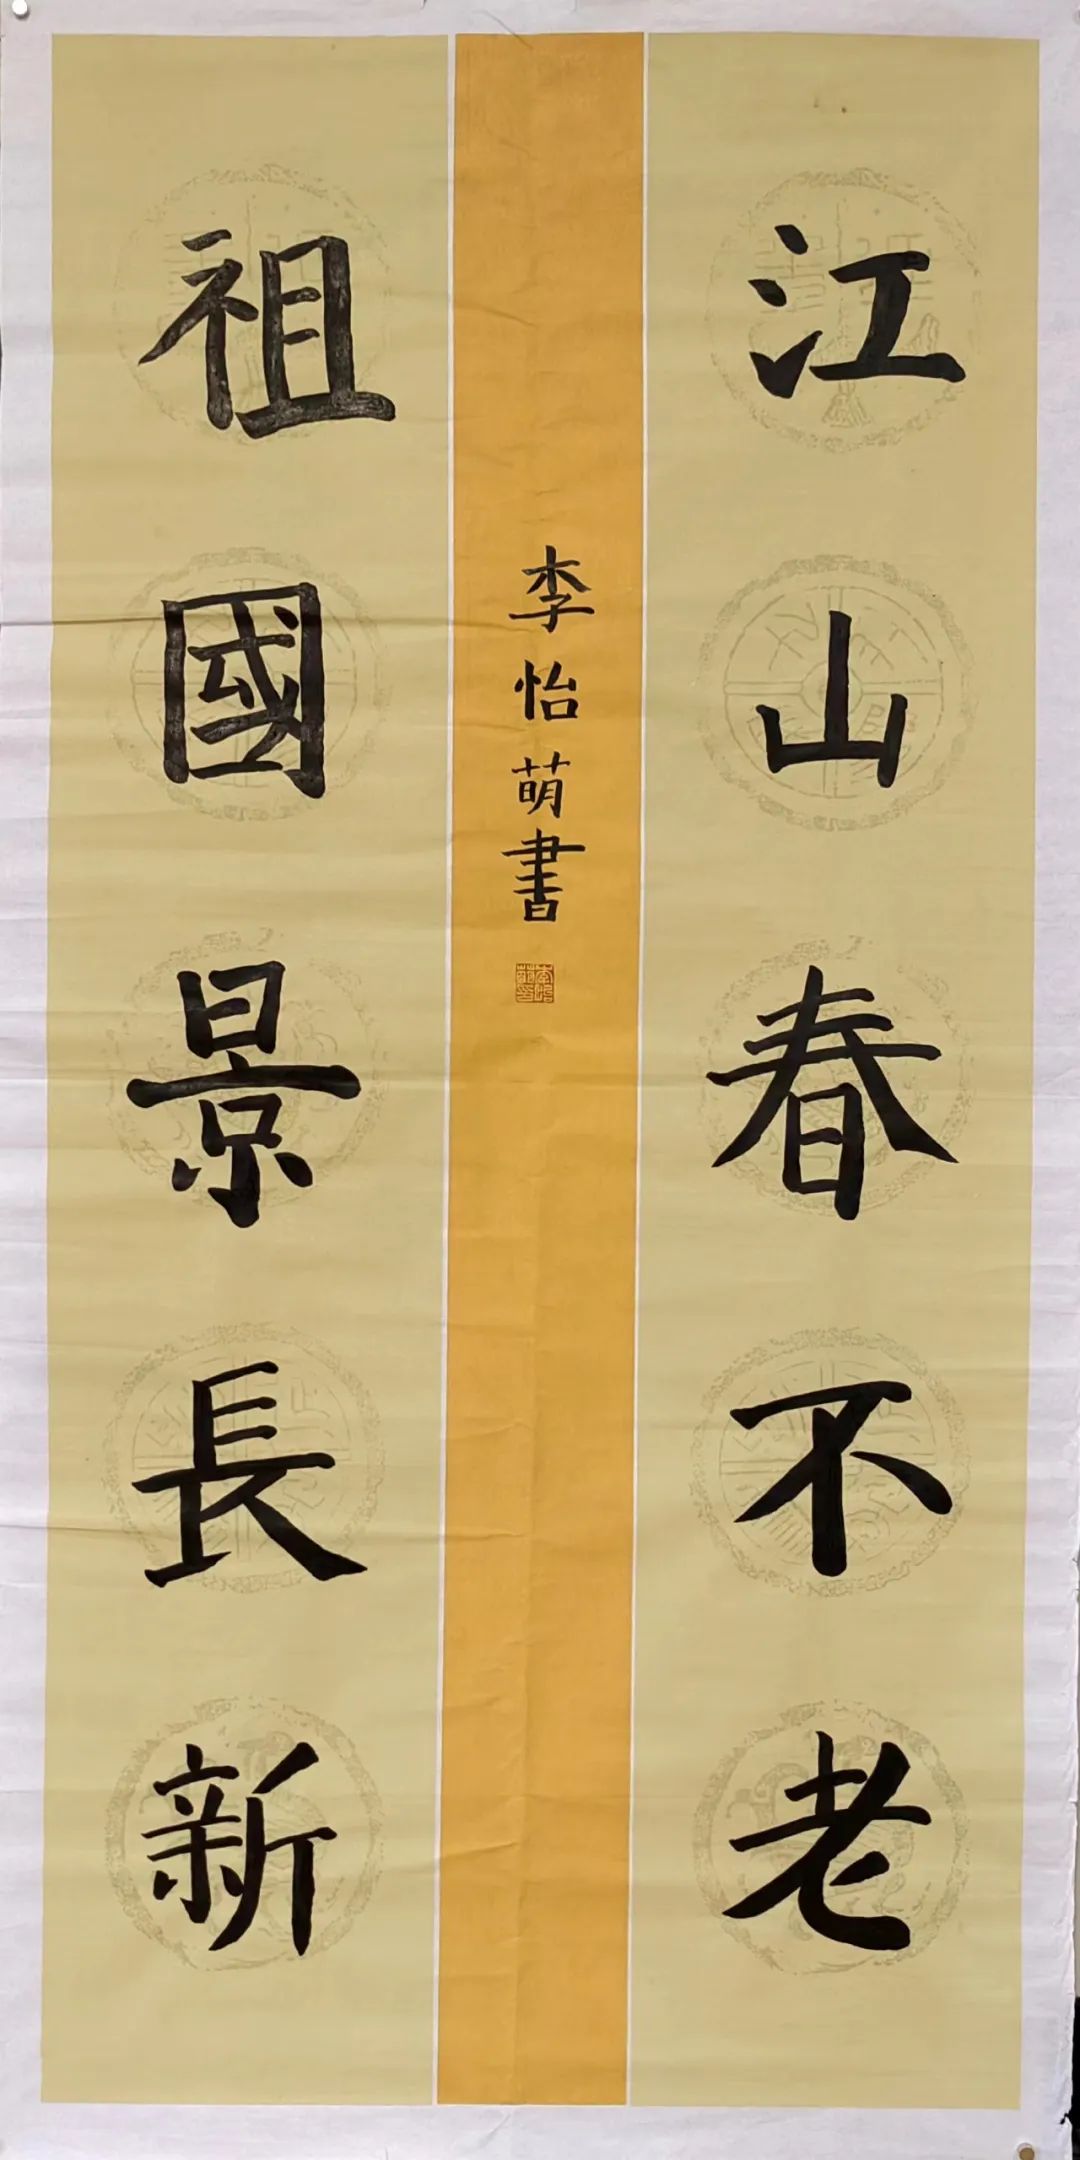 江山春不老
祖國景長新
李怡萌書